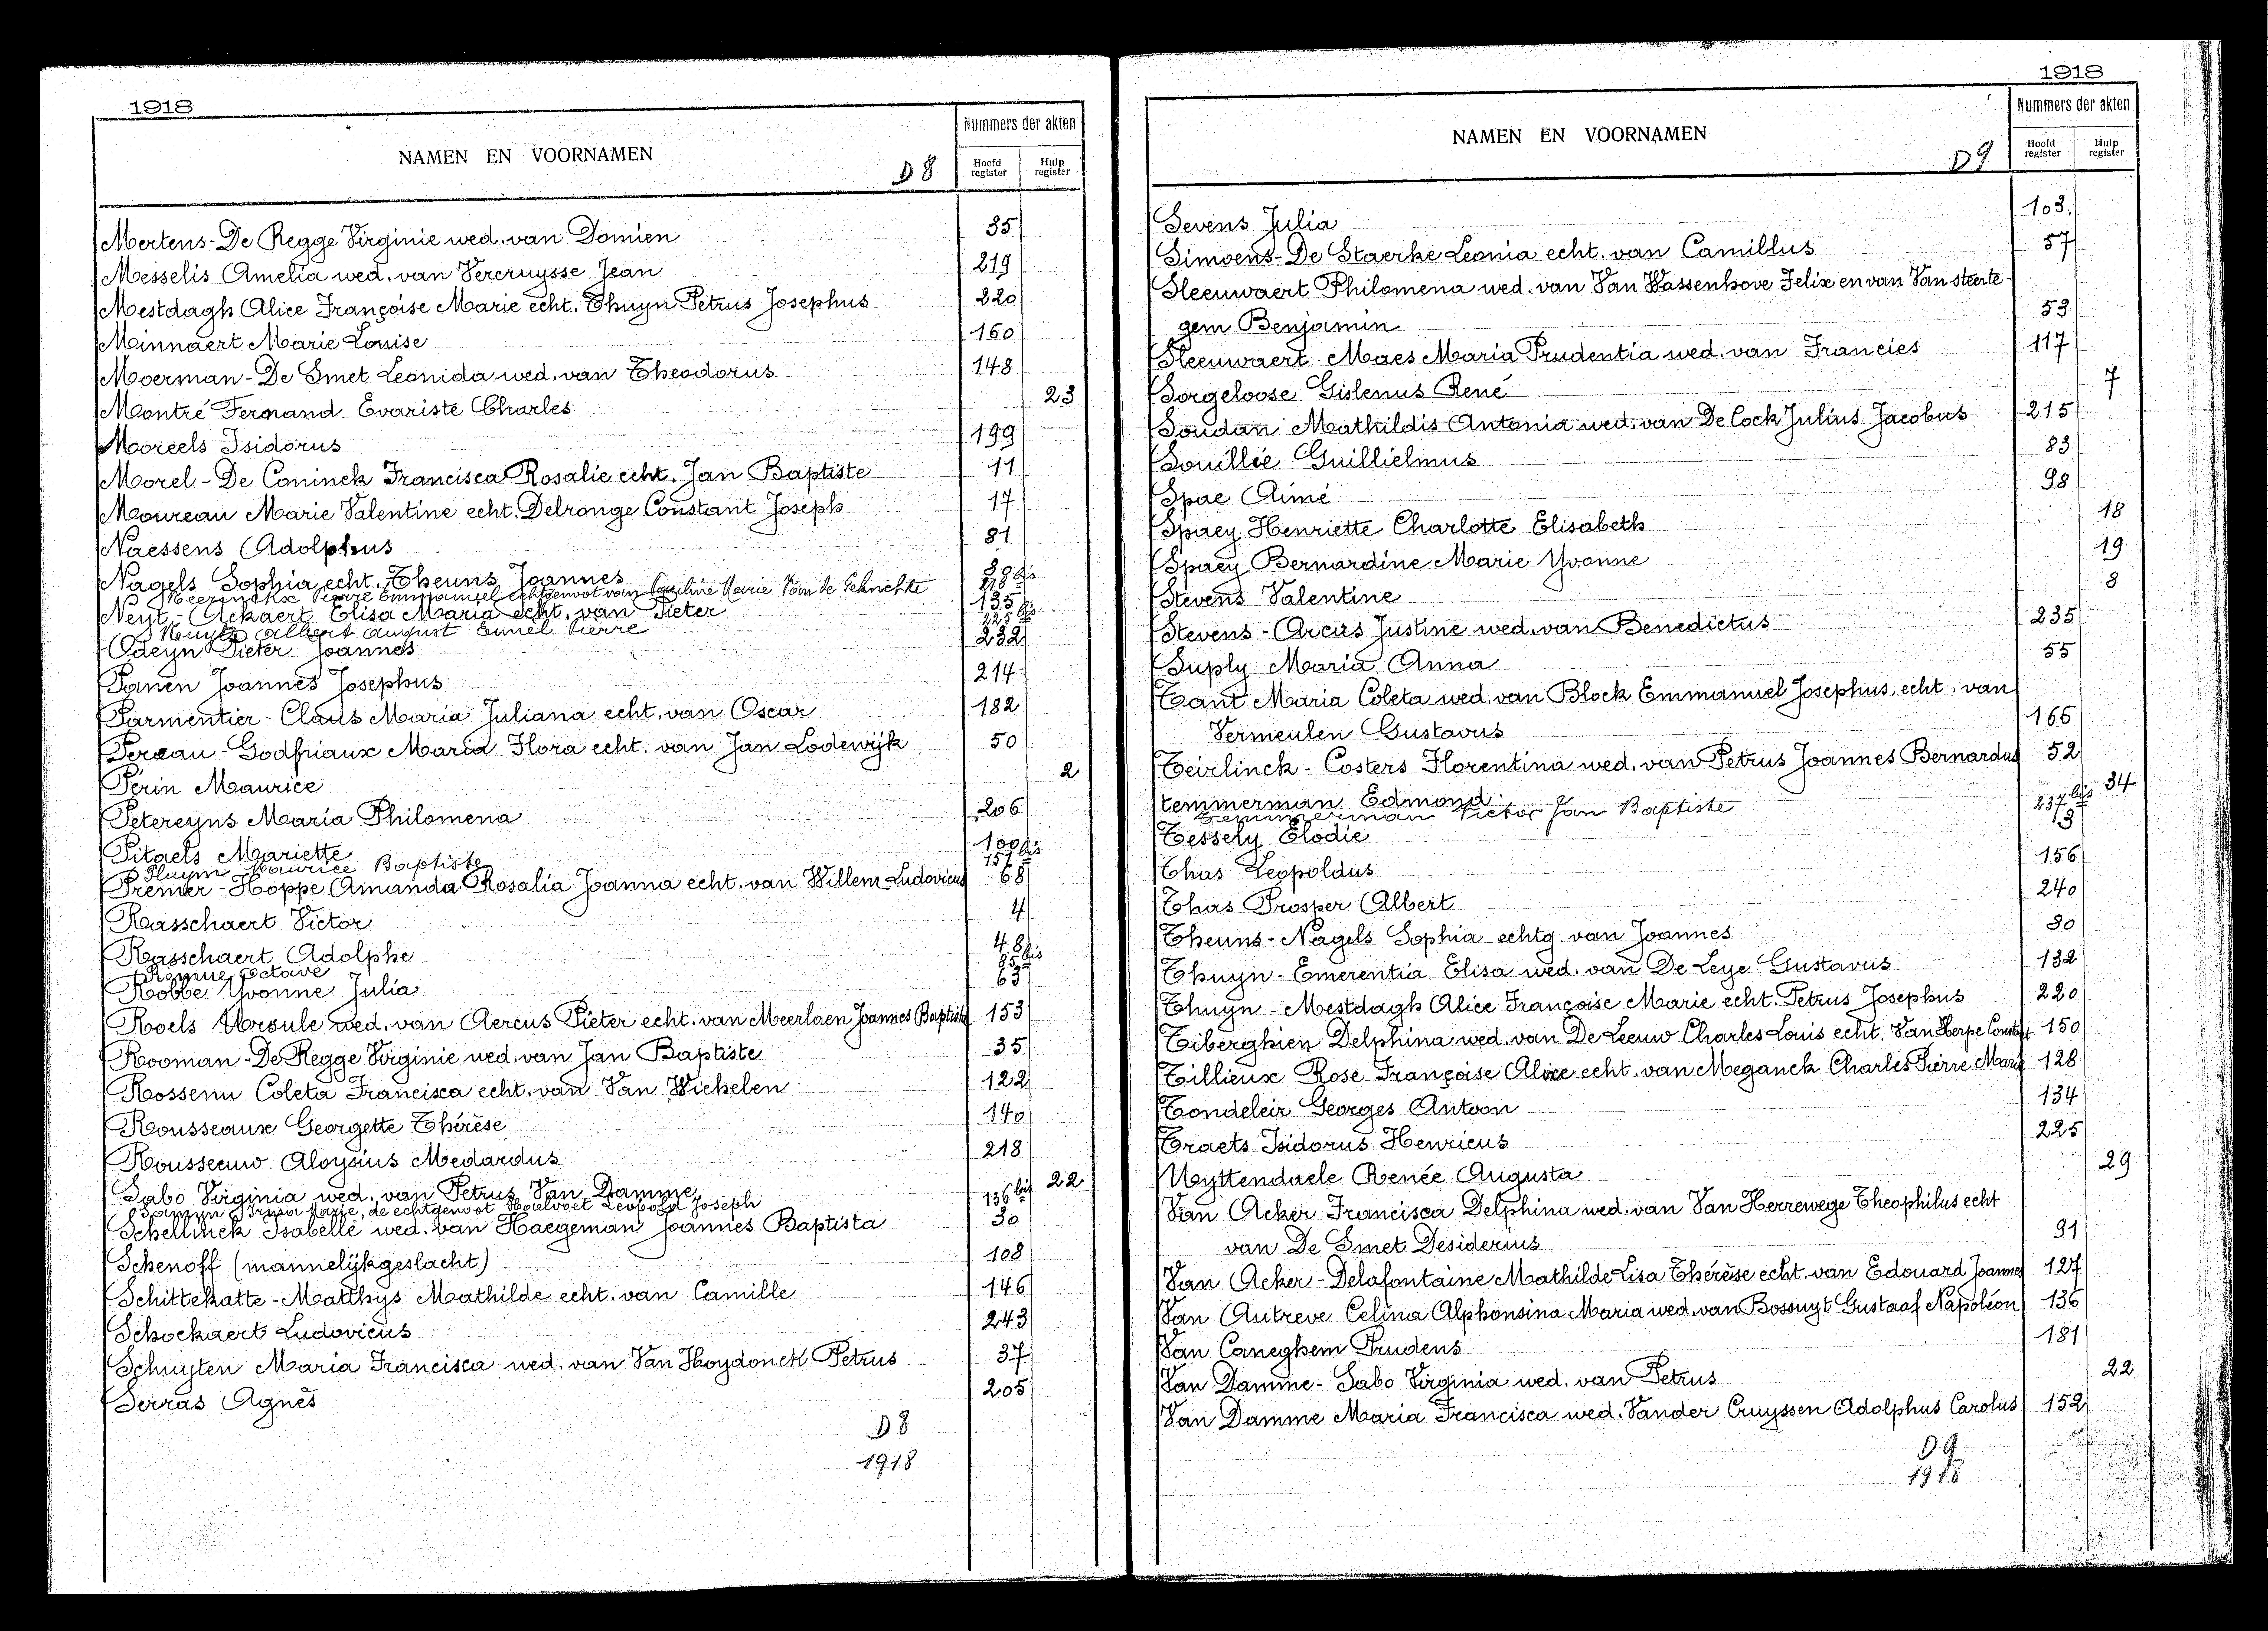 1918
NAMEN EN VOORNAMEN
D 8
Nummers der akten
Hoofd register
Hulp register
Mertens-De Regge Virginie wed. van Domien 35
Messelis Amelia wed. van Vercruysse Jean 219
Mestdagh Alice Françoise Marie echt. Thuyn Petrus Josephus 220
Minnaert Marie Louise 160
Moerman-De Smet Leonida wed. van Theodorus 148
Montré Fernand Evariste Charles 23
Moreels Isidorus 199
Morel-De Coninck Francisca Rosalie echt. Jan Baptiste 11
Moureau Marie Valentine echt. Delronge Constant Joseph 17
Naessens Adolphus 81
Nagels Sophia echt. Theuns Joannes 80
Pierre Emmanuel echtgenoot van Marie Van de 218 bis
Neyt-Ackaert Elisa Maria echt. van Pieter 135
Nuyts Albert August Emiel Pierre 225 bis
Odeyn Pieter Joannes 232
Panen Joannes Josephus 214
Parmentier-Claus Maria Juliana echt. van Oscar 182
Pereau-Godfriaux Maria Flora echt. van Jan Lodewijk 50
Périn Maurice 2
Petereyns Maria Philomena 206
Pitaels Mariette 100
Pluym Maurice Baptiste 151 bis
Premer-Hoppe Amanda Rosalia Joanna echt. van Willem Ludovicus 68
Rasschaert Victor 4
Rasschaert Adolphe 48
Remue Octave 85 bis
Robbe Yvonne Julia 63
Roels Ursule wed. van Aercus Pieter echt. van Meerlaen Joannes Baptiste 153
Rooman-De Regge Virginie wed. van Jan Baptiste 35
Rossenu Coleta Francisca echt. van Van Wichelen 122
Rousseaux Georgette Thérèse 140
Rousseeuw Aloysius Medardus 218
Sabo Virginia wed. van Petrus Van Damme 22
Irma Marie, de echtgenoot Leopold Joseph 136 bis
Schellinck Isabelle wed. van Haegeman Joannes Baptista 30
Schenoff (mannelijkgeslacht) 108
Schittekatte-Matthys Mathilde echt. van Camille 146
Schockaert Ludovicus 243
Schuyten Maria Francisca wed. van Van Hoydonck Petrus 37
Serras Agnès 205
D 8
1918
1918
NAMEN EN VOORNAMEN
D 9
Nummers der akten
Hoofd register
Hulp register
Sevens Julia 103
Simoens-De Staerke Leonia echt. van Camillus 57
Sleeuwaert Philomena wed. van Van Wassenhove Felix en van Van steerte-
gem Benjamin 53
Sleeuwaert-Maes Maria Prudentia wed. van Francies 117
Sorgeloose Gislenus René 7
Soudan Mathildis Antonia wed. van De Cock Julius Jacobus 215
Souillie Guillielmus 83
Spae Aimé 98
Spaey Henriette Charlotte Elisabeth 18
Spaey Bernardine Marie Yvonne 19
Stevens Valentine 8
Stevens-Arcus Justine wed. van Benedictus 235
Suply Maria Anna 55
Tant Maria Coleta wed. van Block Emmanuel Josephus, echt. van
Vermeulen Gustavus 166
Teirlinck-Costers Florentina wed. van Petrus Joannes Bernardus 52
temmerman Edmond 34
Temmerman Victor Jan Baptiste 237 bis
Tessely Elodie 3
Thas Leopoldus 156
Thas Prosper Albert 240
Theuns-Nagels Sophia echtg. van Joannes 80
Thuyn-Emerentia Elisa wed. van De Leye Gustavus 132
Thuyn-Mestdagh Alice Françoise Marie echt. Petrus Josephus 220
Tiberghien Delphina wed. van De Leeuw Charles Louis echt. Van Herpe Constant 150
Tillieux Rose Françoise Alixe echt. van Meganck Charles Pierre Marie 128
Tondeleir Georges Antoon 134
Traets Isidorus Henricus 225
Uyttendaele Renée Augusta 29
Van Acker Francisca Delphina wed. van Van Herrewege Theophilus echt
van De Smet Desiderius 91
Van Acker-Delafontaine Mathilde Lisa Thérèse echt. van Edouard Joannes 127
Van Autreve Celina Alphonsina Maria wed. van Bossuyt Gustaaf Napoléon 136
Van Caneghem Prudens 181
Van Damme-Sabo Virginia wed. van Petrus 22
Van Damme Maria Francisca wed. Vander Cruyssen Adolphus Carolus 152
D 9
1918